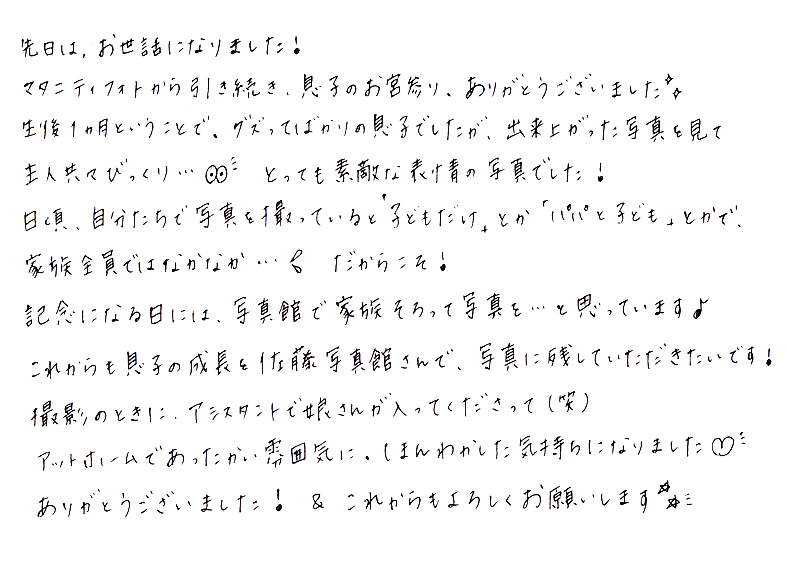 先日は、お世話になりました!
マタニティフォトから引き続き、息子のお宮参り、ありがとうございました
生後1ヵ月ということで、グズってばかりの息子でしたが、出来上がった写真を見て
主人共々びっくり… とっても素敵な表情の写真でした!
日頃、自分たちで写真を撮っていると「子どもだけ」とか「パパと子ども」とかで、
家族全員ではなかなか… だからこそ!
記念になる日には、写真館で家族そろって写真を…と思っています♪
これからも息子の成長を佐藤写真館さんで、写真に残していただきたいです!
撮影のときに、アシスタントで娘さんが入ってくださって(笑)
アットホームであったかい雰囲気に、ほんわかした気持ちになりました
ありがとうございました! & これからもよろしくお願いします